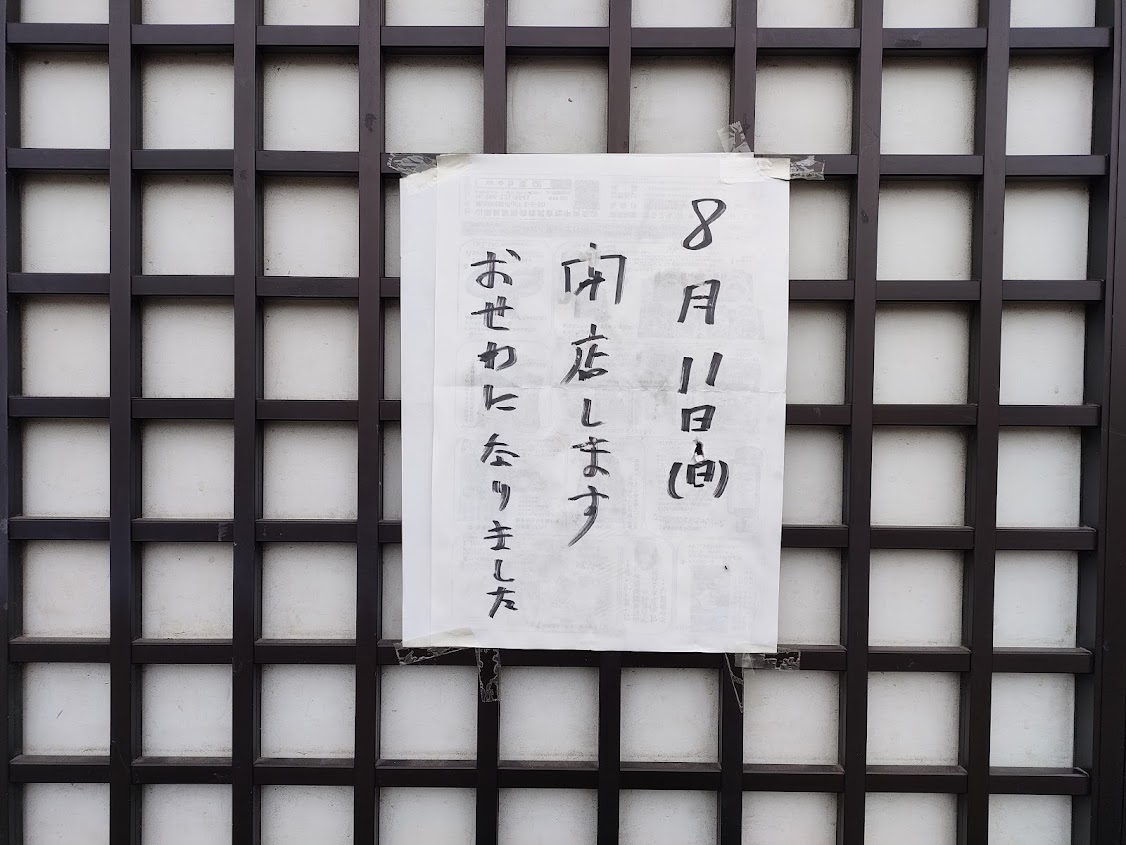 8月11日(日)
閉店します
おせわになりました